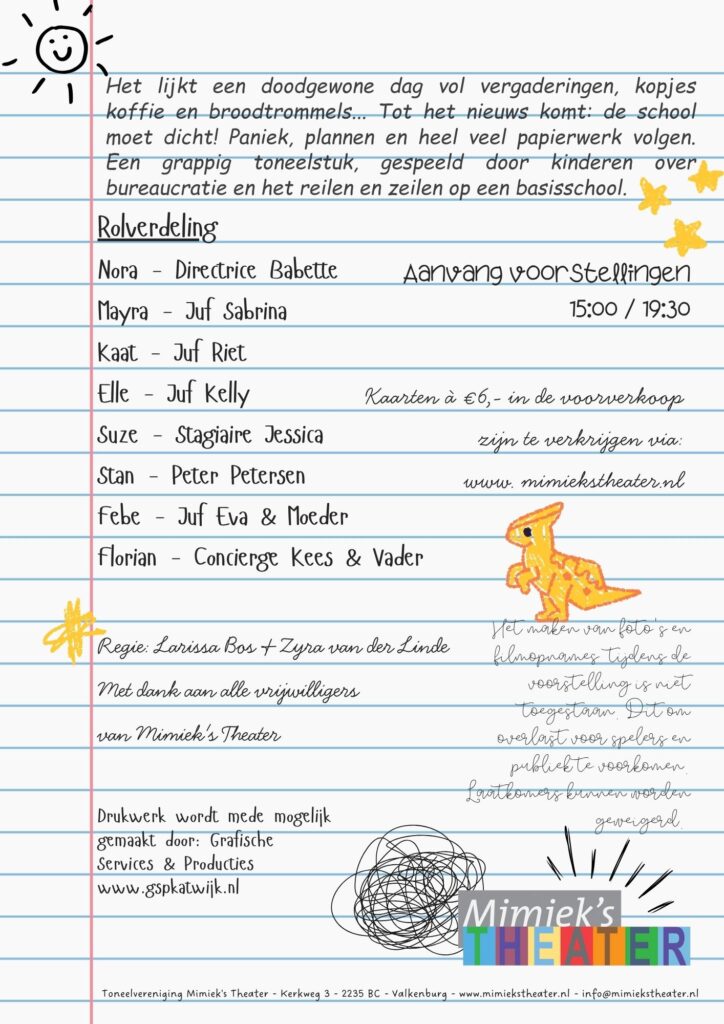 Het lijkt een doodgewone dag vol vergaderingen, kopjes
koffie en broodtrommels... Tot het nieuws komt: de school
moet dicht! Paniek, plannen en heel veel papierwerk volgen.
Een grappig toneelstuk, gespeeld door kinderen over
bureaucratie en het reilen en zeilen op een basisschool.
Rolverdeling
Nora - Directrice Babette
Mayra - Juf Sabrina
Kaat - Juf Riet
Elle - Juf Kelly
Suze - Stagiaire Jessica
Stan - Peter Petersen
Febe - Juf Eva & Moeder
Florian - Concierge Kees & Vader
Aanvang voorstellingen
15:00 / 19:30
Kaarten à €6,- in de voorverkoop
zijn te verkrijgen via:
www. mimiekstheater.nl
Regie: Larissa Bos + Zyra van der Linde
Met dank aan alle vrijwilligers
van Mimiek's Theater
Het maken van foto's en
filmopnames tijdens de
voorstelling is niet
toegestaan. Dit om
overlast voor spelers en
publiek te voorkomen.
Laatkomers kunnen worden
geweigerd.
Drukwerk wordt mede mogelijk
gemaakt door: Grafische
Services & Producties
www.gspkatwijk.nl
Mimiek's
THEATER
Toneelvereniging Mimiek's Theater - Kerkweg 3 - 2235 BC - Valkenburg - www.mimiekstheater.nl - info@mimiekstheater.nl